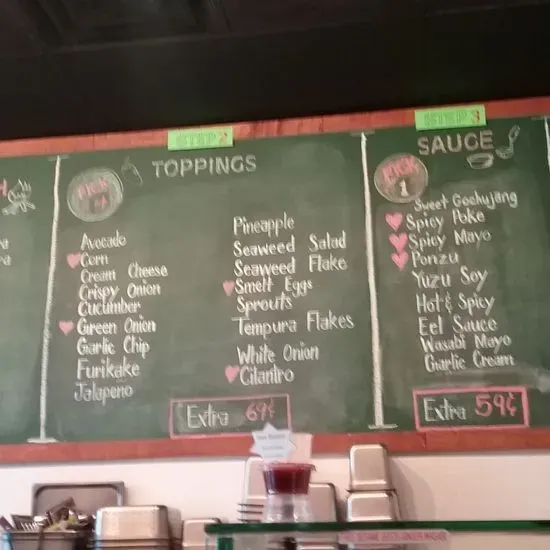 STEP 2
TOPPINGS
PICK
Avocado
Corn
Cream Cheese
Crispy Onion
Cucumber
Green Onion
Garlic Chip
Furikake
Jalapeno
Pineapple
Seaweed Salad
Seaweed Flake
Smelt Eggs
Sprouts
Tempura Flakes
White Onion
Cilantro
Extra 69¢
STEP 3
SAUCE
PICK
1
Sweet Gochujang
Spicy Poke
Spicy Mayo
Ponzu
Yuzu Soy
Hot & Spicy
Eel Sauce
Wasabi Mayo
Garlic Cream
Extra 59¢